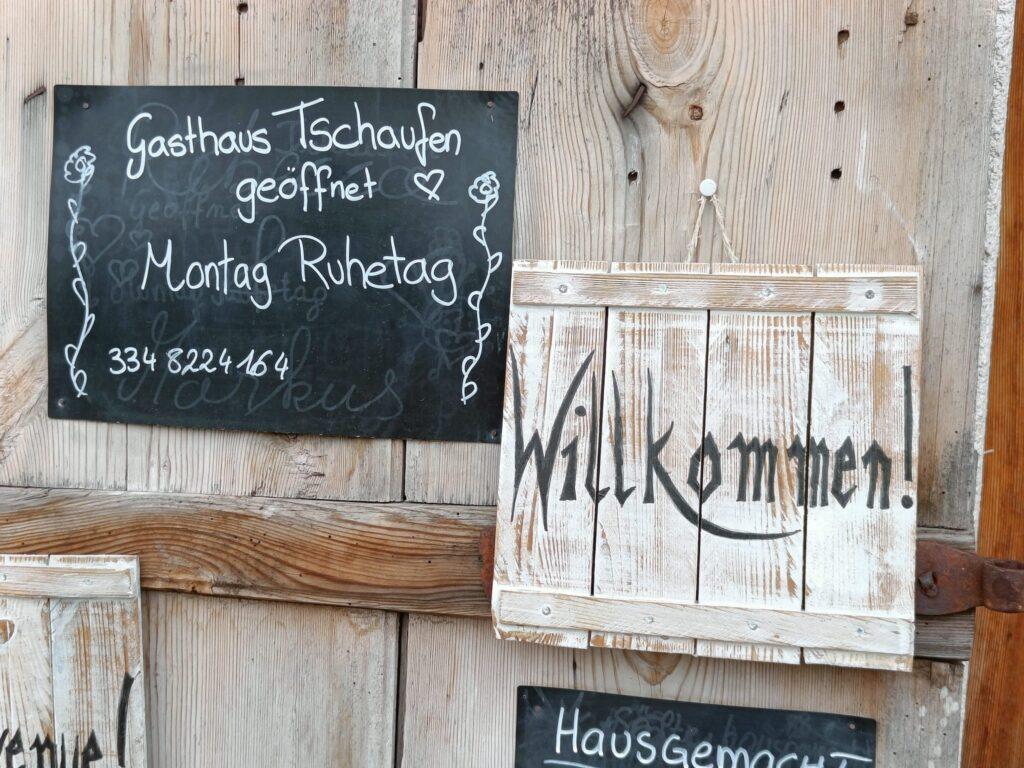 Gasthaus Tschaufen
geöffnet
Montag Ruhetag
334 8224164
Markus
Willkommen!
Hausgemacht